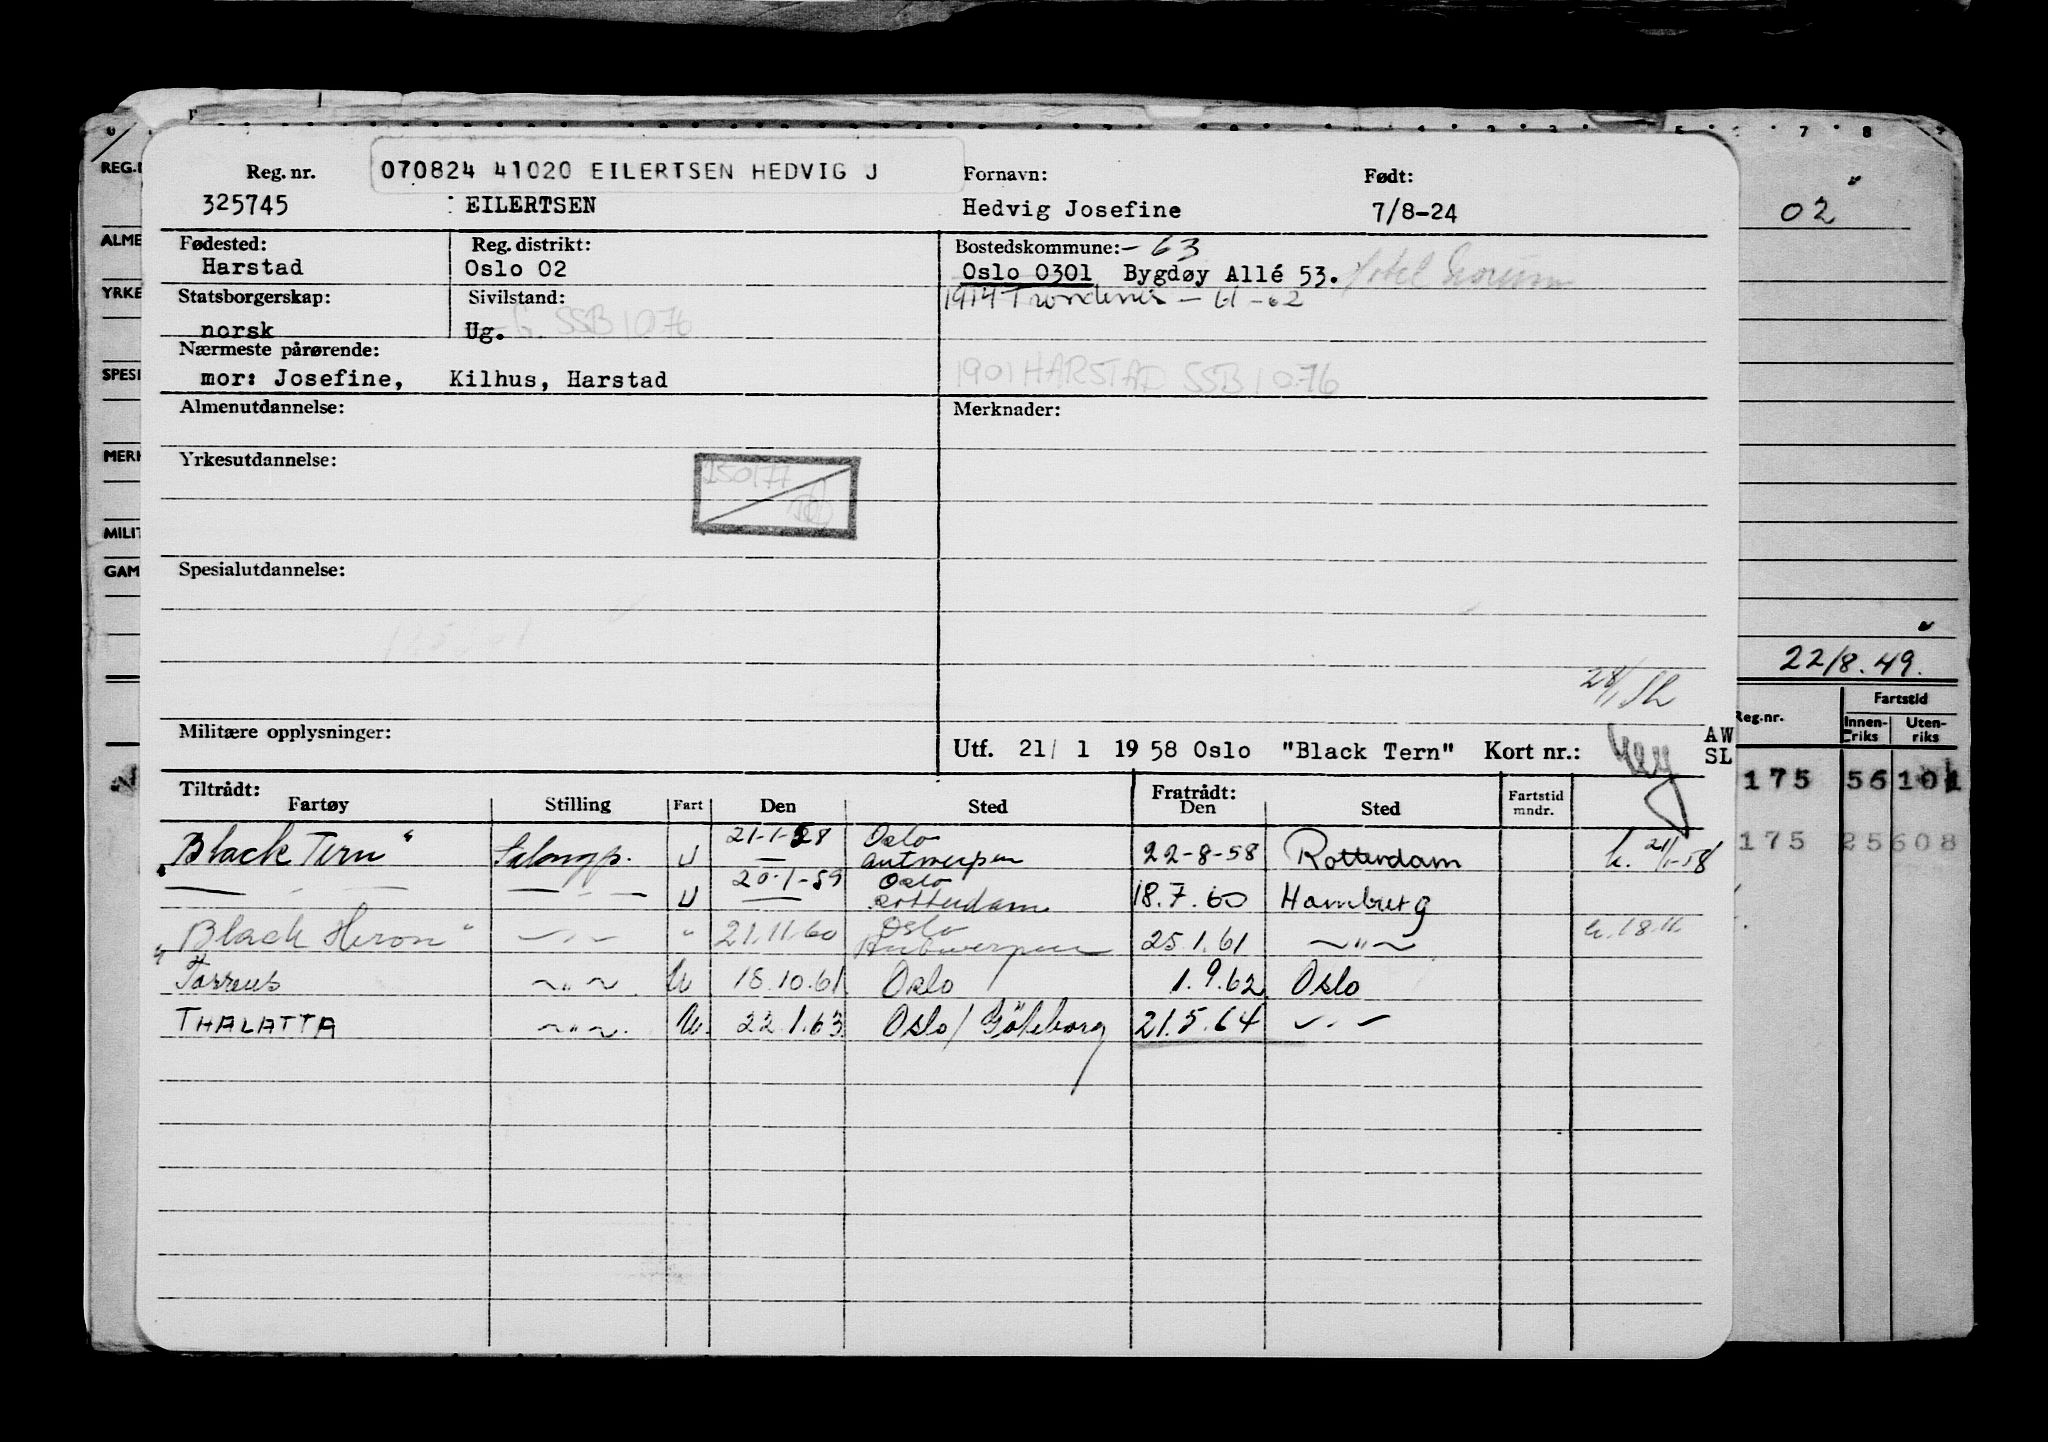 070824 41020 EILERTSEN HEDVIG J
Reg. nr. Fornavn: Født:
325745 EILERTSEN Hedvig Josefine 7/8-24
Fødested: Reg. distrikt: Bostedskommune: - 63
Harstad Oslo 02 Oslo 0301 Bygdøy Allé 53. Hotel
Statsborgerskap: Sivilstand: 1914 Trondenes - 61-62
norsk Ug. G. SSB 1076
Nærmeste pårørende:
mor: Josefine, Kilhus, Harstad 1901 HARSTAD SSB 1076
Almenutdannelse: Merknader:
Yrkesutdannelse:
150177
Spesialutdannelse:
Militære opplysninger:
Utf. 21/ 1 1958 Oslo "Black Tern" Kort nr.: AW
SL
Tiltrådt: Fratrådt:
Fartøy Stilling Fart Den Sted Den Sted Fartstid mndr.
"Black Tern" Salongp. U 21-1-58 Oslo Antwerpen 22-8-58 Rotterdam h. 21/1-58
— — — — — — U 20-1-59 Oslo Rotterdam 18.7.60 Hamburg
"Black Heron" —〃— " 21.11.60 Oslo Antwerpen 25.1.61 ~〃~ h. 18.11
Tarrens ~〃~ U 18.10.61 Oslo 1.9.62 Oslo
THALATTA ~〃~ U. 22.1.63 Oslo/Göteborg 21.5.64 —〃—
REG.
ALME
YRKE
SPESI
MERK
MILIT
GAM
7 8
02
22/8.49.
Reg.nr. Fartstid
Innen-riks Uten-riks
175 56 101
175 25608